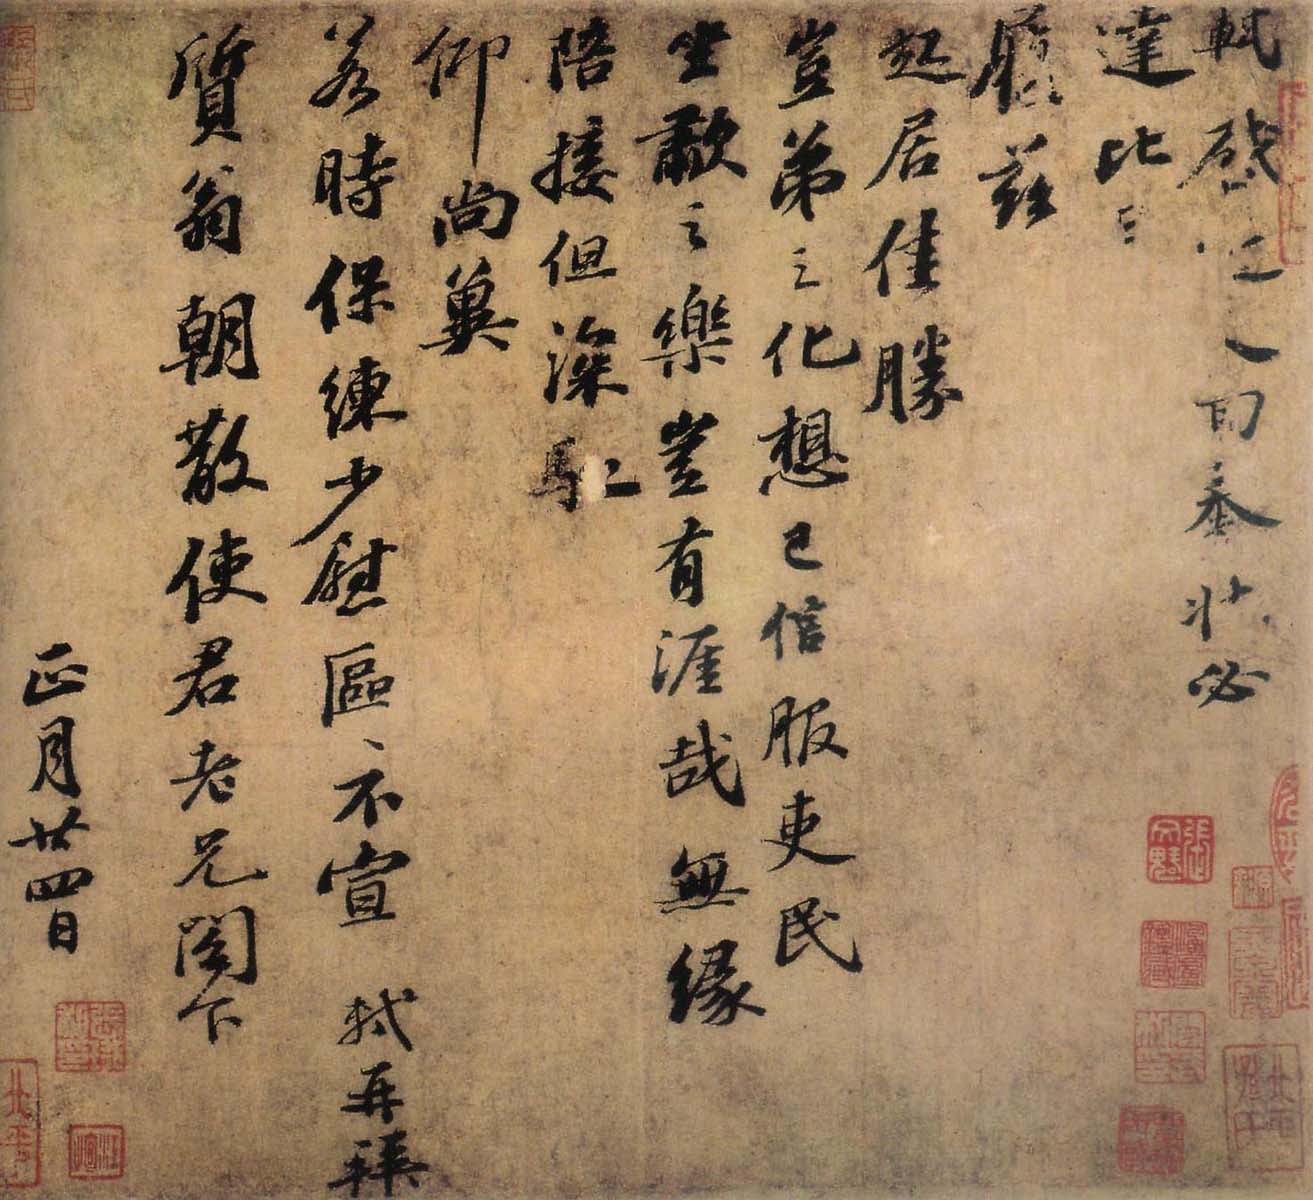 軾啓近人回奉狀必
達比
履茲
起居佳勝
豈弟之化想已信服吏民
坐歗之樂豈有涯哉無緣
陪接但深馳
仰尚冀
若時保練少慰區〻不宣 軾再拜
質翁朝散使君老兄閣下
正月廿四日
張文魁